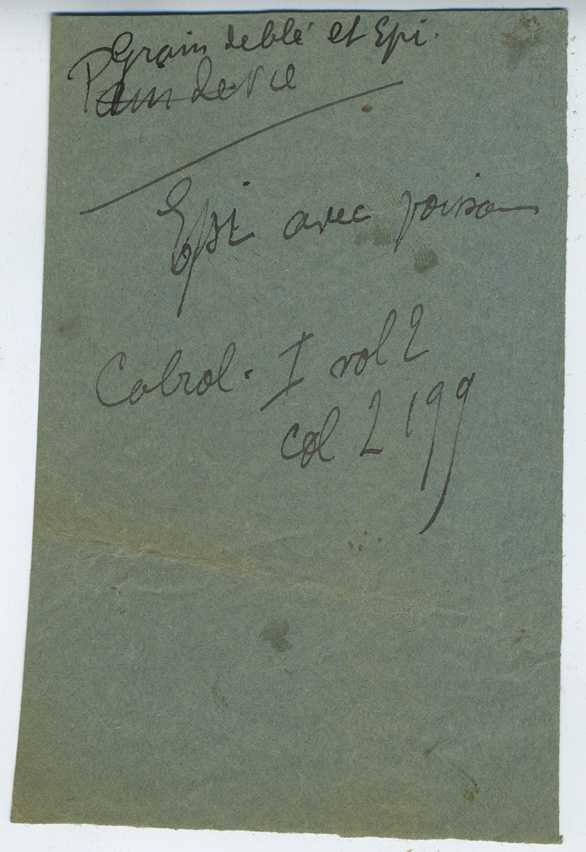 Grain de blé et Epi.
Pain de vie
Epi avec poisson
Cabrol. I vol 2
col 2199